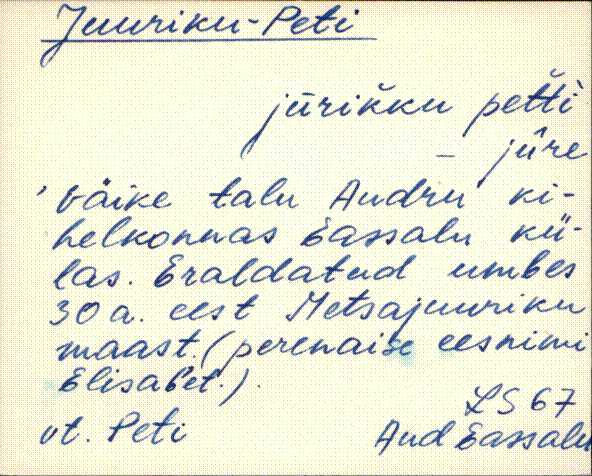 Juuriku-Peti
jūrikku petti
– jûre
'väike talu Audru ki-
helkonnas Eassalu kü-
las. Eraldatud umbes
30 a. eest Metsajuuriku
maast. (perenaise eesnimi
Elisabet.)'.
LS 67
vt. Peti
Aud Eassalu